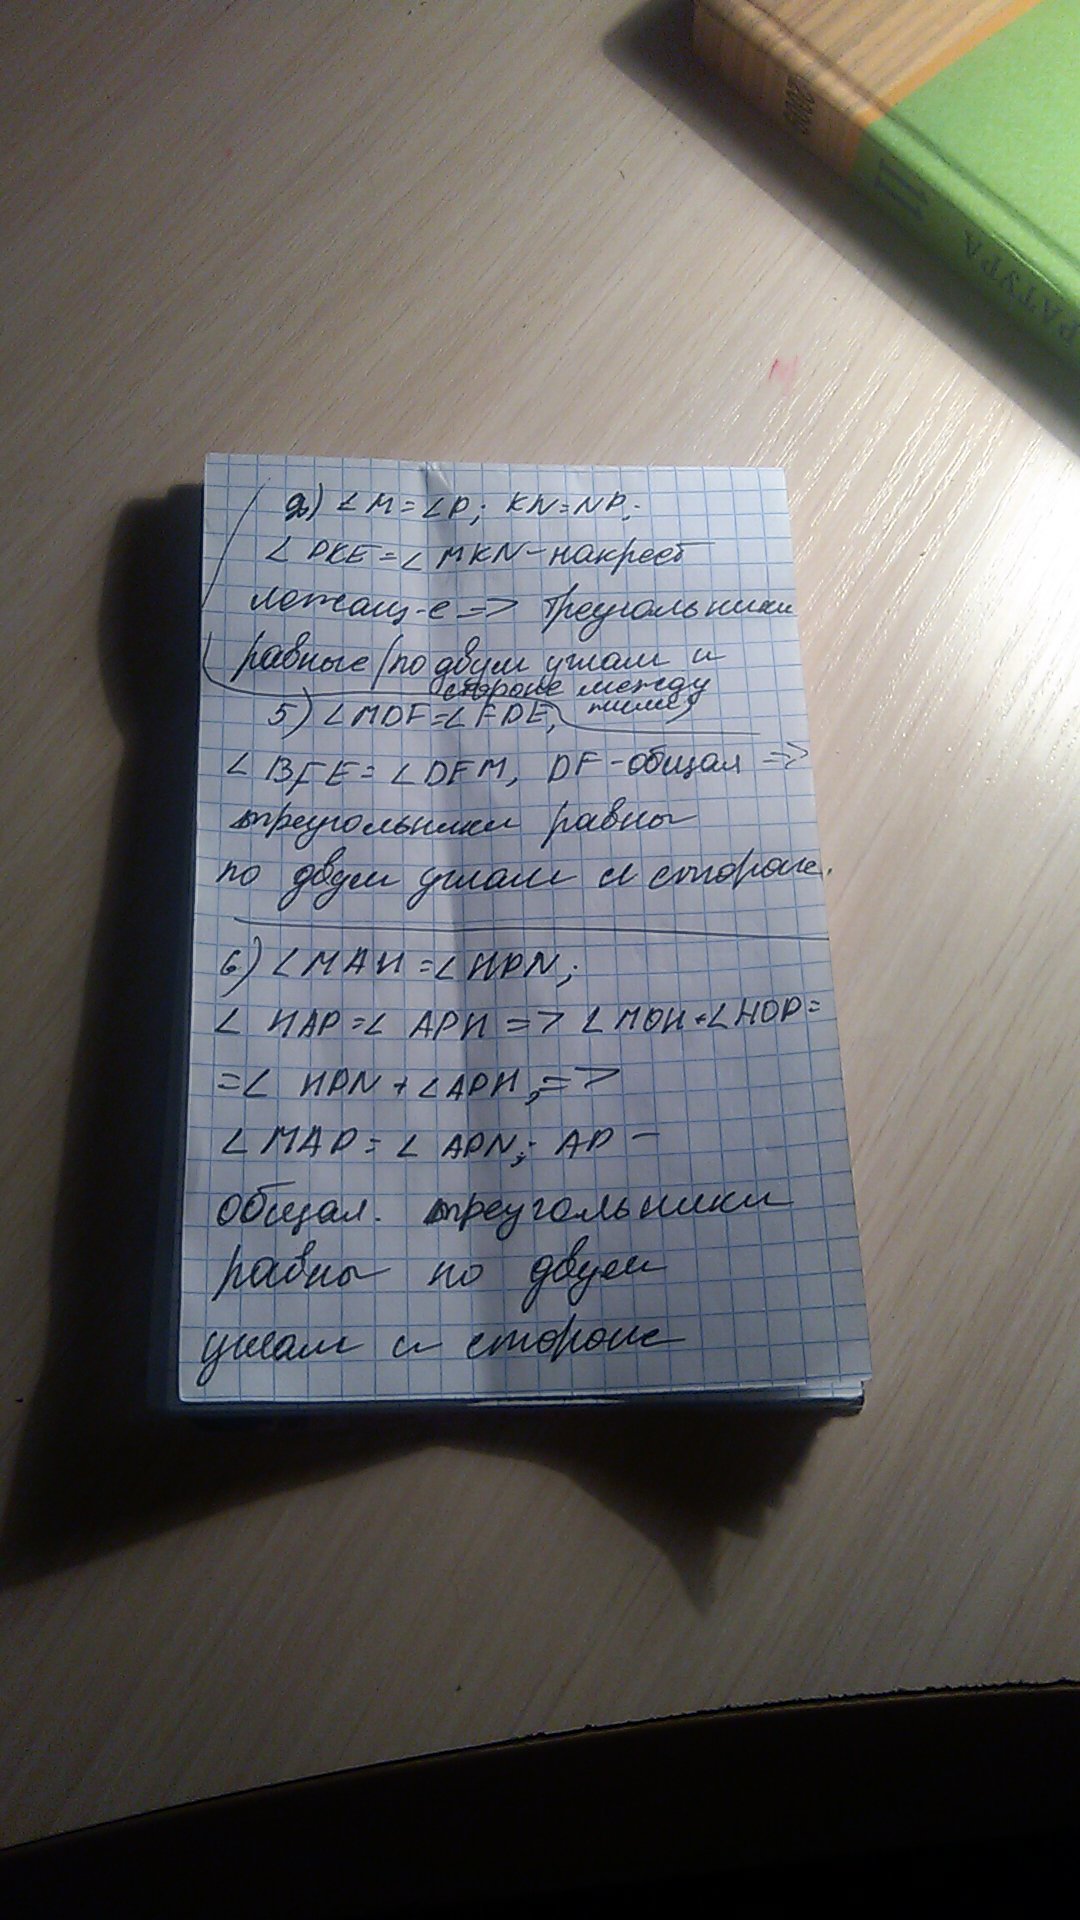 РАТУРА
2) ∠M = ∠P; KN = NP;
∠PKE = ∠MKN - накрест
лежащ-е => треугольники
равные (по двум углам и
стороне между
ними)
5) ∠MDF = ∠FDE,
∠BFE = ∠DFM, DF - общая =>
треугольники равны
по двум углам и стороне.
6) ∠MAH = ∠HPN;
∠HAP = ∠APH => ∠MOH + ∠HOP =
= ∠HPN + ∠APH, =>
∠MAP = ∠APN; AP -
общая. треугольники
равны по двум
углам и стороне